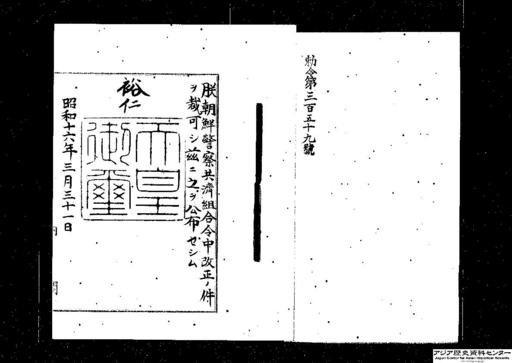 勅令第三百五十九號
朕朝鮮警察共濟組合令中改正ノ件
ヲ裁可シ茲ニ之ヲ公布セシム
裕仁
天皇御璽
昭和十六年三月三十一日
アジア歴史資料センター
Japan Center for Asian Historical Records